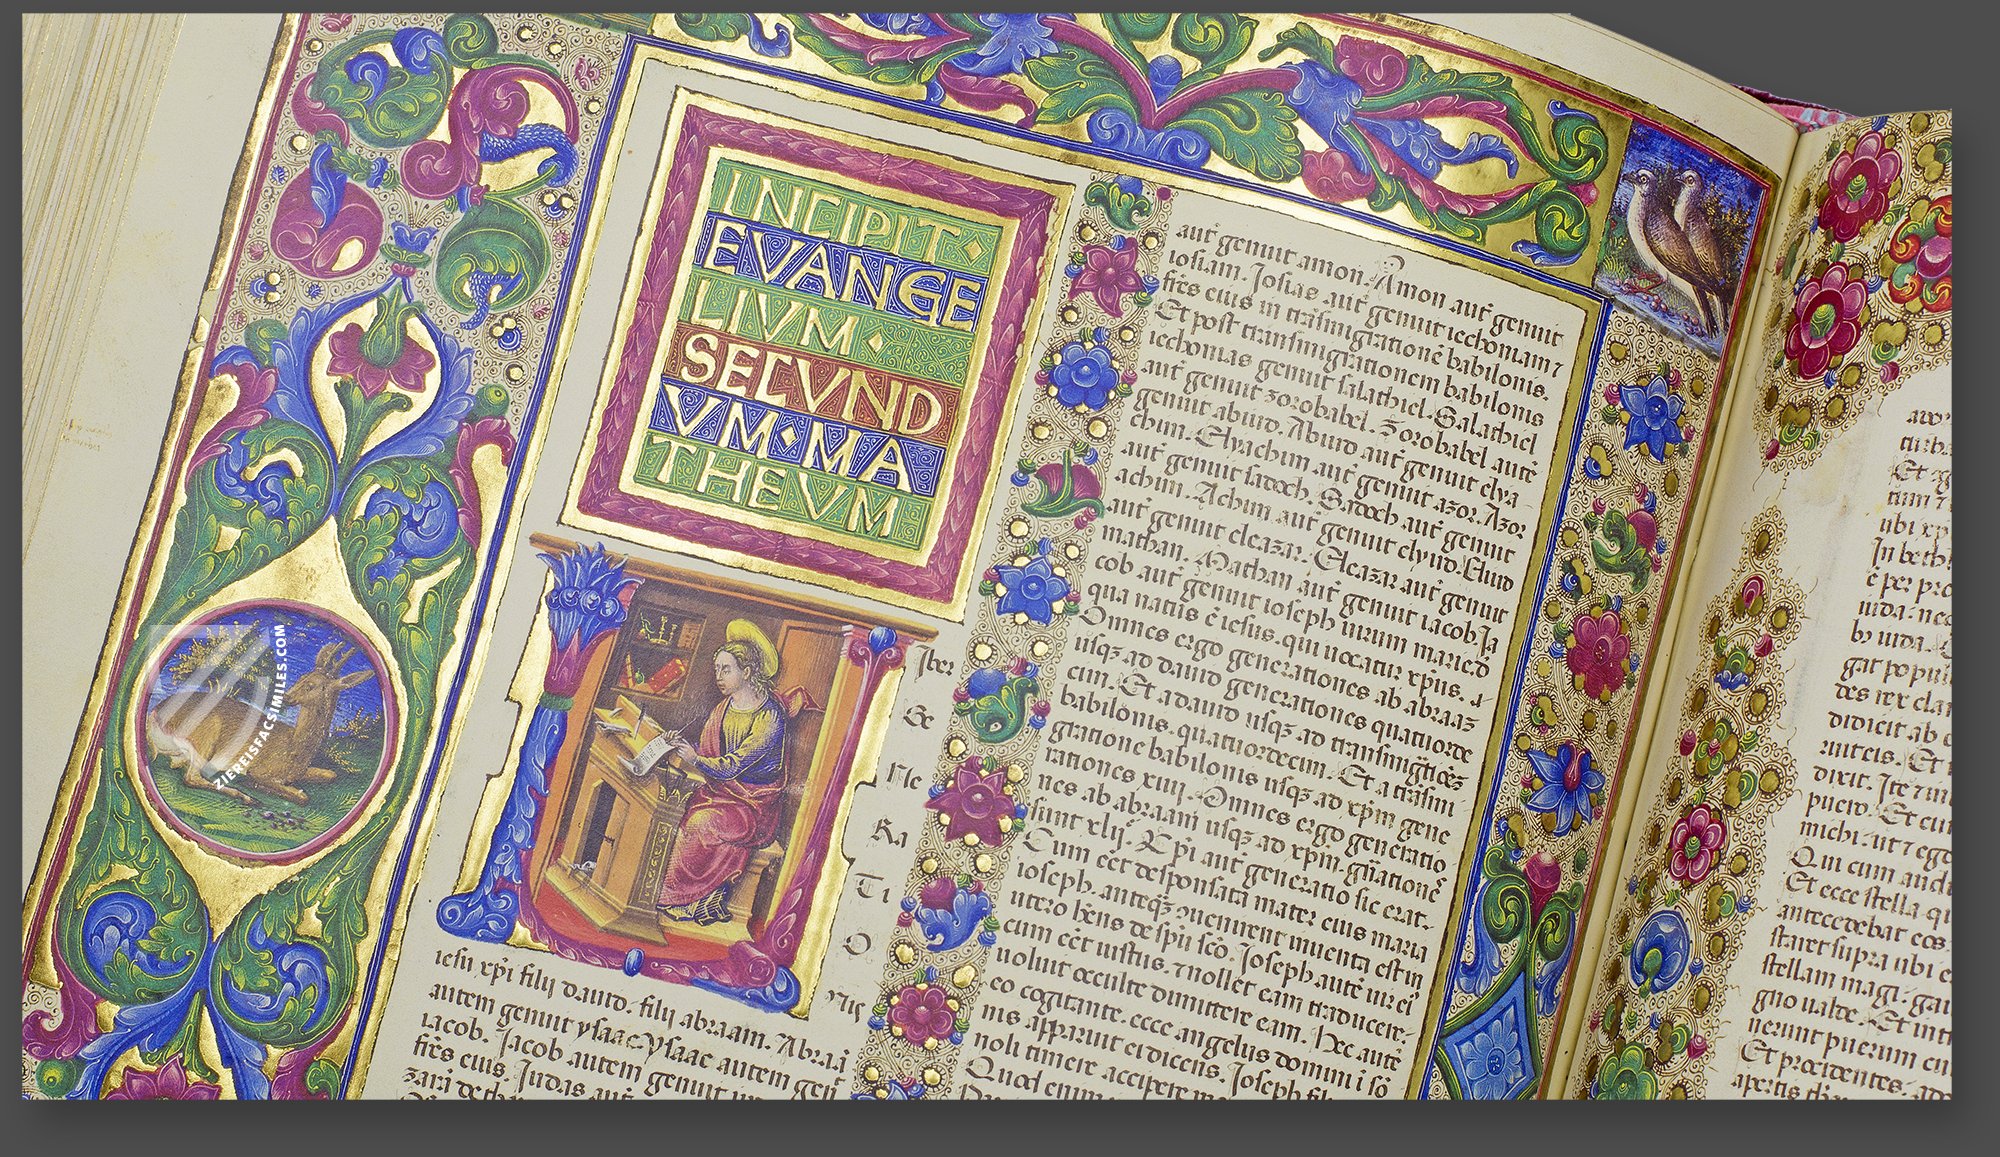 INCIPIT
EVANGE
LIVM
SECVND
VM·MA
THEVM
Iber
Ge
Ne
Ra
Ti
O
Nis
iesu xpi filij dauid. filij abraam. Abraā
autem genuit ysaac. ysaac autem genuit
iacob. Jacob autem genuit
fr̄es eius. Iudas aut̄
zara de th
aut̄ genuit amon. Amon aut̄ genuit
iosiam. Iosias aut̄ genuit iechoniam ⁊
fr̄es eius in trāsmigratione babilonis.
Et post transmigrationem babilonis
iechonias genuit salathiel. Salathiel
aut̄ genuit zorobabel. Zorobabel autē
genuit abiud. Abiud aut̄ genuit elya
chim. Elyachim aut̄ genuit azor. Azor
aut̄ genuit sadoch. Sadoch aut̄ genuit
achim. Achim aut̄ genuit elyud. Eliud
aut̄ genuit eleazar. Eleazar aut̄ genuit
mathan. Mathan aut̄ genuit iacob Ja
cob aut̄ genuit ioseph uirum marie. d
qua natus ē iesus. qui uocatur xpus.
Omnes ergo generationes ab abraaz
usqz ad dauid generationes quatuorde
cim. Et a dauid usqz ad transmigtiōez
babilonis. quatuordecim. Et a trāsmi
gratione babilonis usqz ad xpm gene
rationes xiiij. Omnes ergo generatio
nes ab abraam usqz ad xpm. gnationē
sunt xlij. Xpi aut̄ generatio sic erat.
Cum eēt desponsata mater eius maria
ioseph. anteqz uenirent inuenta est in
utero hēns de spū scō. Joseph autē uir eī
cum eēt iustus. ⁊ nollet eam traducere.
uoluit occulte dimittere eam. Hec autē
eo cogitante. ecce angelus domini ī sō
nis apparuit ei dicens. Joseph fili
noli timere accipere
Quod enim
turb
Et
tum ⁊
ubi xp
In beth
ē per pro
iuda: nec
by iuda.
gat popul
des rex cla
didicit ab
uuteis. Et
dixit. Ite ⁊ in
puero. Et cu
michi. ut ⁊ ego
Qui cum audi
Et ecce stella q
antecedebat eos
staret supra ubi e
stellam magi. gau
gno ualde. Et int
nerunt puerum cu
Et procidentes. ad
apertis
ZIEREISFACSIMILES.COM